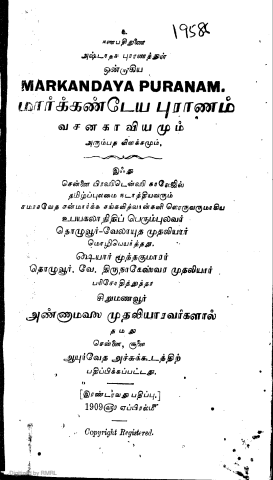 1958
உ
கணபதிதுணை
அஷ்டாதச புராணத்துள்
ஒன்றாகிய
MARKANDAYA PURANAM.
மார்க்கண்டேய புராணம்
வசனகாவியமும்
அரும்பத விளக்கமும்.
இஃது
சென்னை பிரஸிடென்ஸி காலேஜில்
தமிழ்ப்புலமை நடாத்தியவரும்
சமரசவேத சன்மார்க்க சங்கவித்வான்களி லொருவருமாகிய
உபயகலாநிதிப் பெரும்புலவர்
தொழுவூர்-வேலாயுத முதலியார்
மொழிபெயர்த்தது.
ஷையார் மூத்தகுமாரர்
தொழுவூர், வே, திருநாகேஸ்வர முதலியார்
பரிசோதித்ததா
சிறுமணவூர்
அண்ணாமலை முதலியாரவர்களால்
தமது
சென்னை, சூளை
ஆயுர்வேத அச்சுக்கூடத்திற்
பதிப்பிக்கப்பட்டது.
[இரண்டாவது பதிப்பு.]
1909௵ ஏப்பிரல்௴
Copyright Registered.
Digitized by RMRL